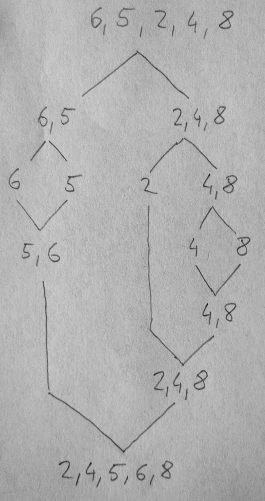 6, 5, 2, 4, 8
6, 5 2, 4, 8
6 5 2 4, 8
5, 6 4 8
4, 8
2, 4, 8
2, 4, 5, 6, 8